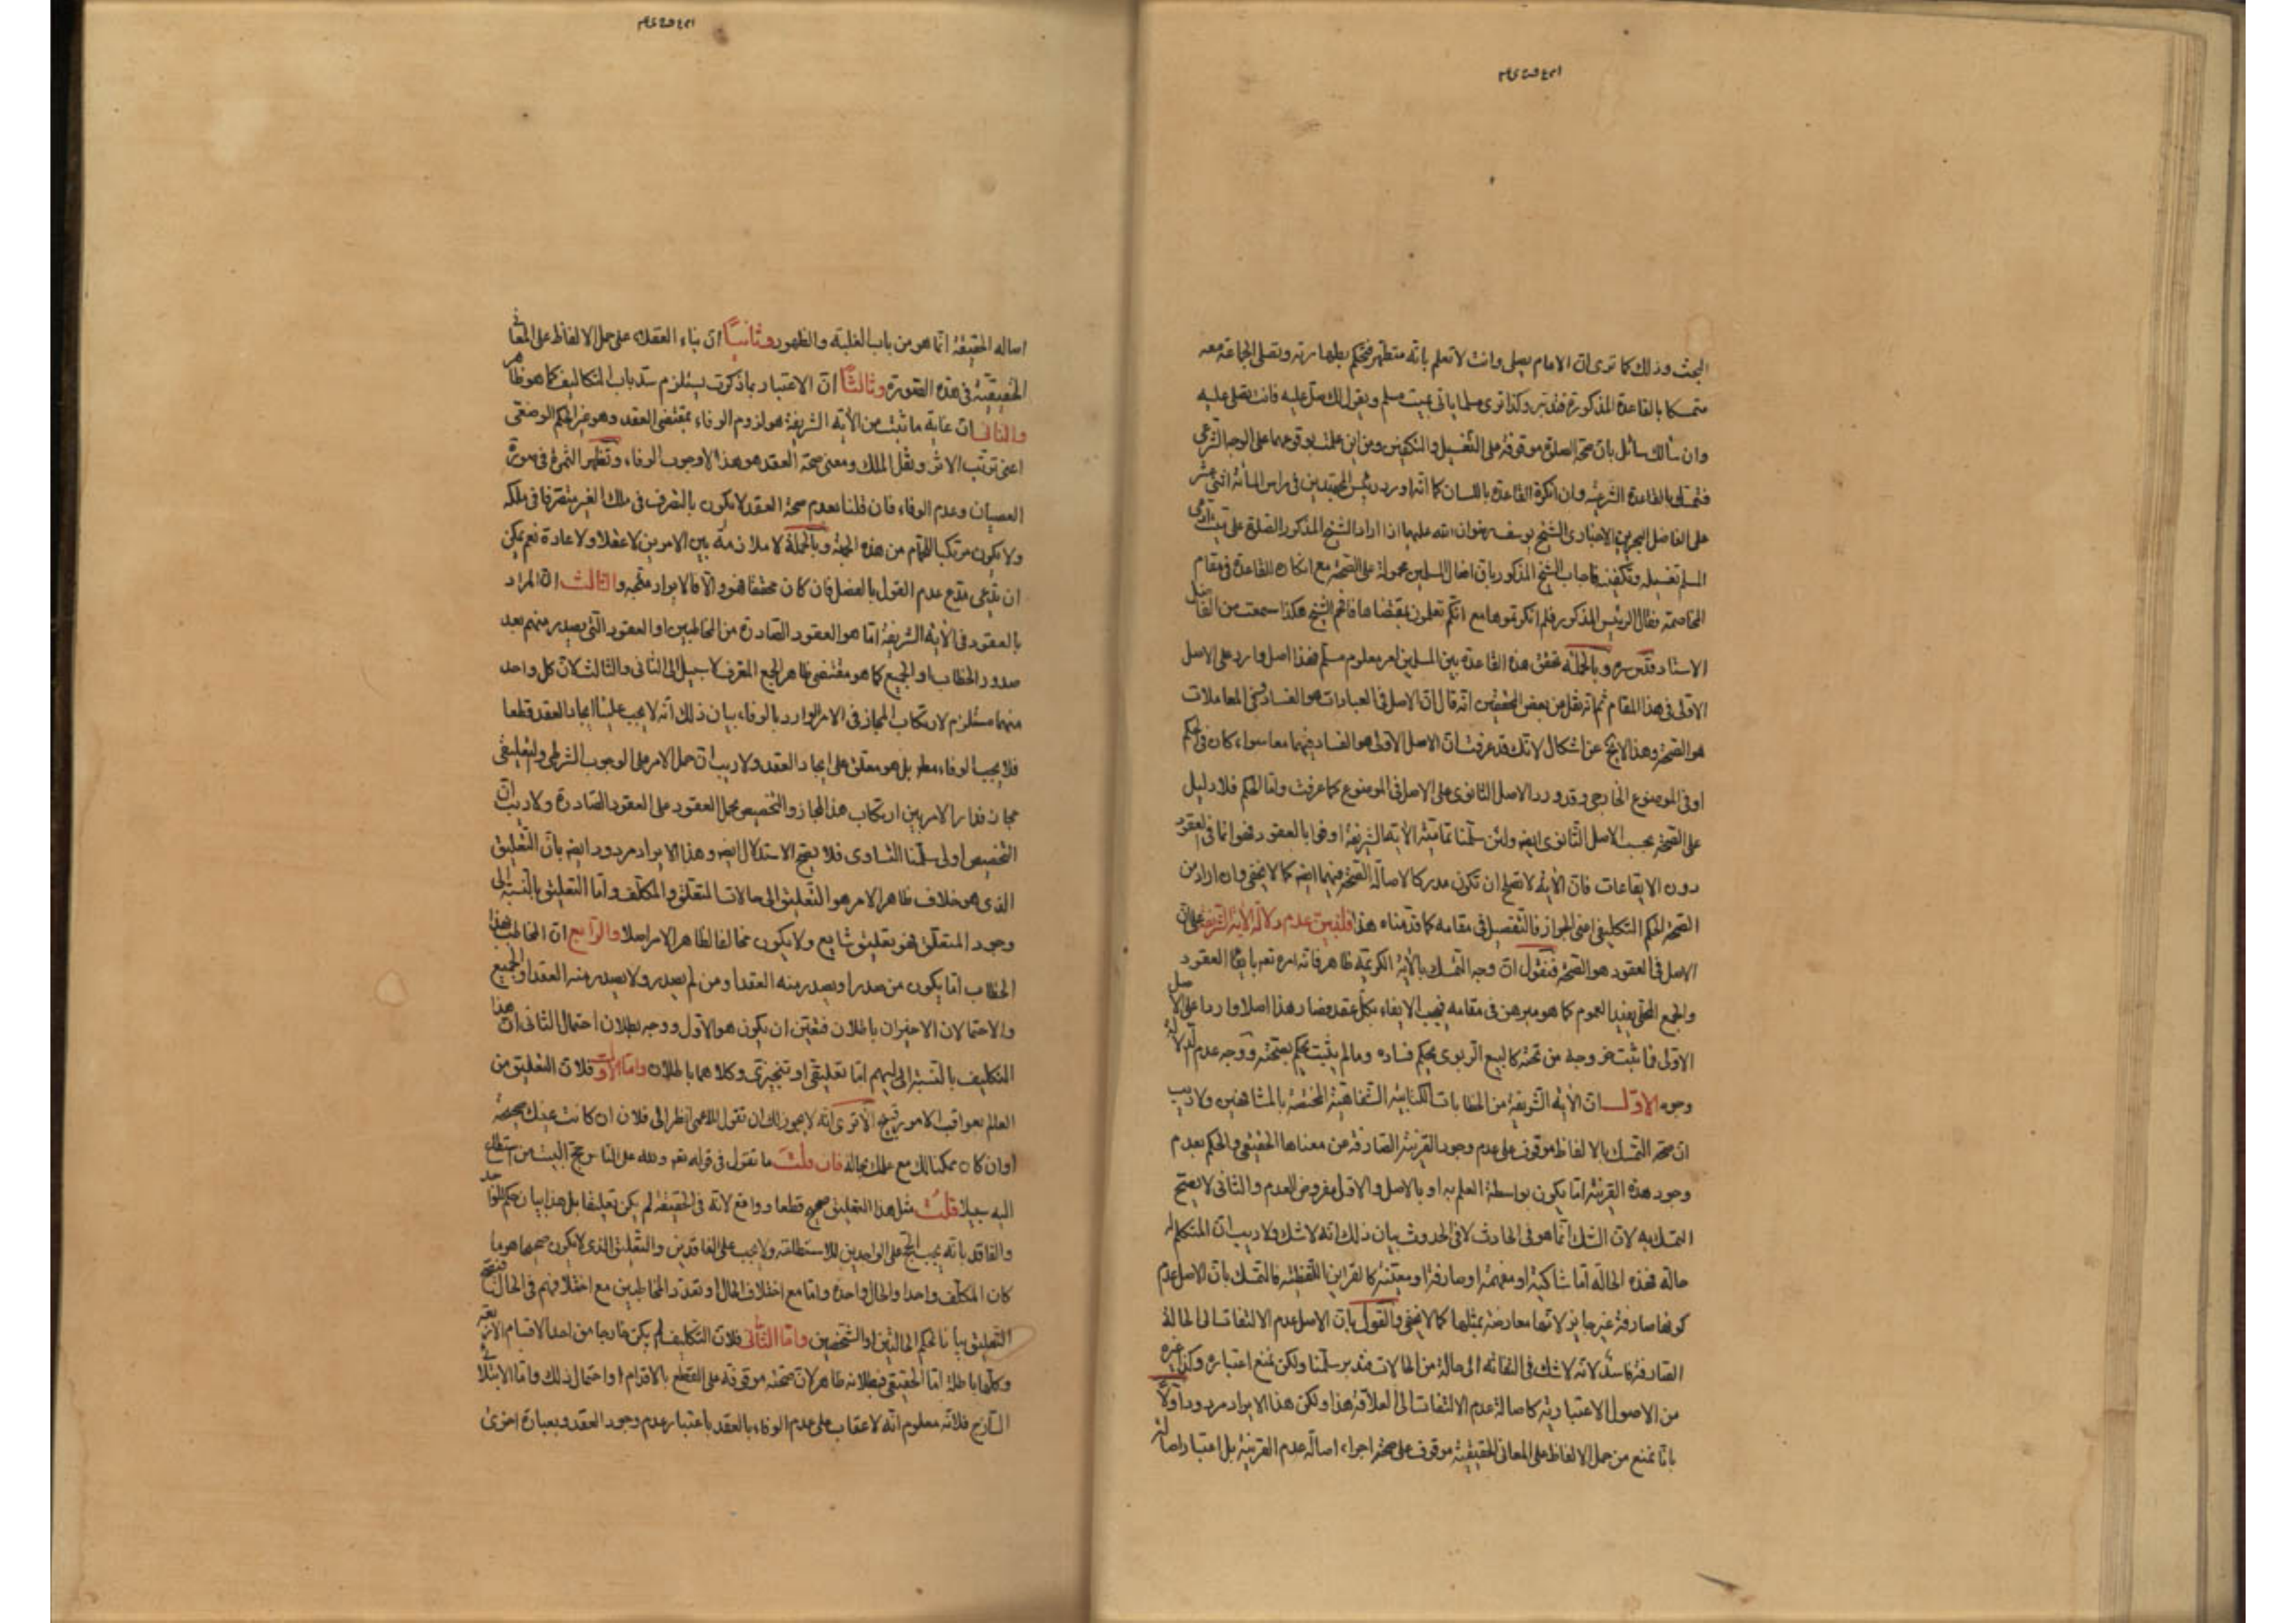 البحث وذلك كما ترى ان الامام يصلى وانت لا تعلم بانه متطهر فتحكم بطهارته وتصلى الجماعة معه
متمسكا بالقاعدة المذكورة فتدبر وكذا ترى مسلما ياتى بميت مسلم ويقول لك صل عليه فانت تصلى عليه
وان سألك سائل بان صحة الصلوة موقوفة على التغسيل والتكفين ومن اين علمت بوقوعهما على الوجه الشرعى
فتمسك بالقاعدة الشرعية وان انكرت القاعدة باللسان كما انه اورد رئيس المجتهدين فى راس المأئة اثنى عشر
على الفاضل البحرينى الاخبارى الشيخ يوسف رضوان الله عليهما اذا اراد الشيخ المذكور الصلوة على ميت
المسلم تغسيله وتكفينه فاجاب الشيخ المذكور بان افعال المسلمين محمولة على الصحة مع انكاره القاعدة فى مقام
المخاصمة فقال الرئيس المذكور فلم انكرتموها مع انكم تعملون بمقتضاها فافحم الشيخ هكذا سمعت من الفاضل
الاستاد قدس سره وبالجملة تحقق هذه القاعدة بين المسلمين امر معلوم مسلم فهذا اصل وارد على الاصل
الاولى فى هذا المقام ثم انه نقل من بعض المحققين انه قال ان الاصل فى العبادات هو الفساد وفى المعاملات
هو الصحة وهذا لايخ عن اشكال لانك قد عرفت ان الاصل الاولى هو الفساد فيهما معا سواء كان فى الحكم
او فى الموضوع الخارجى وقد ورد الاصل الثانوى على الاصل فى الموضوع كما عرفت واما الحكم فلا دليل
على الصحة بحسب الاصل الثانوى ايضه ولئن سلمنا تمامية الاية الشريفة اوفوا بالعقود فهو انما فى العقود
دون الايقاعات فان الاية لا تصلح ان تكون مدركا لاصالة الصحة فيهما ايضه كما لا يخفى وان اراد من
الصحة الحكم التكليفى اعنى الجواز فالتفصيل فى مقامه كما قدمناه هذا فلنبين عدم دلالة الاية الشريفة على ان
الاصل فى العقود هو الصحة فنقول ان وجه التمسك بالاية الكريمة ظاهر فانه امره تعه بايفاء العقود
والجمع المحلى يفيد العموم كما هو مبرهن فى مقامه فيجب الايفاء بكل عقد فصار هذا اصلا واردا على الاصل
الاولى فما ثبت خروجه من تحته كالبيع الربوى يحكم فساده وما لم يثبت يحكم بصحته ووجه عدم الدلالة
وجوه الاول ان الاية الشريفة من الخطابات الكتابية الشفاهية المختصة بالمشافهين ولا ريب
ان صحة التمسك بالالفاظ موقوف على عدم وجود القرينة الصارفة من معناها الحقيقى والحكم بعدم
وجود هذه القرينة اما يكون بواسطة العلم به او بالاصل والاول مفروض العدم والثانى لا يصح
التمسك به لان الشك انما هو فى الحادث لا فى الحدوث بيان ذلك انه لا شك ولا ريب ان المتكلم له
حالة فهذه الحالة اما شاكية او مفهمة او صارفة او معينة كالقراين اللفظية فالتمسك بان الاصل عدم
كونها صارفة غير جايز لانها معارضة بمثلها كما لا يخفى والقول بان الاصل عدم الالتفات الى الحالة
الصارفة فاسد لانه لا شك فى التفاته الى حالة من الحالات فتدبر سلمنا ولكن نمنع اعتباره وكذا غيره
من الاصول الاعتبارية كاصالة عدم الالتفات الى العلاقة هذا ولكن هذا الايراد مردود اولا
بانا نمنع من حمل الالفاظ على المعانى الحقيقية موقوف على صحة اجراء اصالة عدم القرينة بل اعتبار اصالة
اصاله الحقيقة انما هو من باب الغلبة والظهور وثانيا ان بناء العقلاء على حمل الالفاظ على المعانى
الحقيقية فى هذه الصورة وثالثا ان الاعتبار بما ذكرت يستلزم سد باب التكاليف كما هو ظاهر
والثانى ان غاية ما ثبت من الاية الشريفة هو لزوم الوفاء بمقتضى العقد وهو غير الحكم الوضعى
اعنى ترتب الاثر ونقل الملك ومعنى صحة العقد هو هذا لا وجوب الوفاء وتظهر الثمرة فى صورة
العصيان وعدم الوفاء فان قلنا بعدم صحة العقد لا يكون بالتصرف فى ملك الغير متصرفا فى ملكه
ولا يكون مرتكبا للحرام من هذه الجهة وبالجملة لا ملازمة بين الامرين لا عقلا ولا عادة نعم يمكن
ان يدعى مدع عدم القول بالفصل فان كان محققا فهو والا فالايراد متجه والثالث ان المراد
بالعقود فى الاية الشريفة اما هو العقود الصادرة من المخاطبين او العقود التى يصدر منهم بعد
صدور الخطاب او الجميع كما هو مقتضى ظاهر الجمع المعرف لا سبيل الى الثانى والثالث لان كل واحد
منهما مستلزم لارتكاب المجاز فى الامر الوارد بالوفاء بيان ذلك انه لا يجب علينا ايجاد العقد قطعا
فلا يجب الوفاء مطه بل هو معلق على ايجاد العقد ولا ريب ان حمل الامر على الوجوب الشرطى والتعليقى
مجاز فدار الامر بين ارتكاب هذا المجاز والتخصيص بحمل العقود على العقود الصادرة ولا ريب ان
التخصيص اولى سلمنا التساوى فلا يصح الاستدلال ايضه وهذا الايراد مردود ايضه بان التعليق
الذى هو خلاف ظاهر الامر هو التعليق الى حالات المتعلق والمكلف واما التعليق بالنسبة الى
وجود المتعلق فهو تعليق شايع ولا يكون مخالفا لظاهر الامر اصلا والرابع ان المخاطب بهذا
الخطاب اما يكون من صدر او يصدر منه العقد او من لم يصدر ولا يصدر منه العقد او الجميع
والاحتمالان الاخيران باطلان فتعين ان يكون هو الاول ووجه بطلان احتمال الثانى ان هذا
التكليف بالنسبة اليهم اما تعليقى او تنجيزى وكلاهما باطلان واما الاول فلان التعليق من
العالم بعواقب الامور قبيح الا ترى انه لا يجوز لك ان تقول للاعمى انظر الى فلان ان كانت عينك صحيحة
او ان كان ممكنا لك مع علمك بحاله فان قلت ما تقول فى قوله تعه ولله على الناس حج البيت من استطاع
اليه سبيلا قلت مثل هذا التعليق صحيح قطعا وواقع لانه فى الحقيقة لم يكن تعليقا بل هذا بيان حكم الواجد
والفاقد بانه يجب الحج على الواجدين للاستطاعة ولا يجب على الفاقدين والتعليق الذى لا يكون صحيحا هو ما
كان المكلف واحدا والحال واحدة واما مع اختلاف الحال او تعدد المخاطبين مع اختلافهم فى الحال فيصح
التعليق بيانا لحكم الحالتين او الشخصين واما الثانى فلان التكليف لم يكن خارجا من احد الاقسام الاربعة
وكلها باطلة اما الحقيقى فبطلانه ظاهر لان صحته موقوفة على القطع بالاقدام او احتمال ذلك واما الابتلائى
فلانه معلوم انه لا عقاب على عدم الوفاء بالعقد باعتبار عدم وجود العقد وبعبارة اخرى